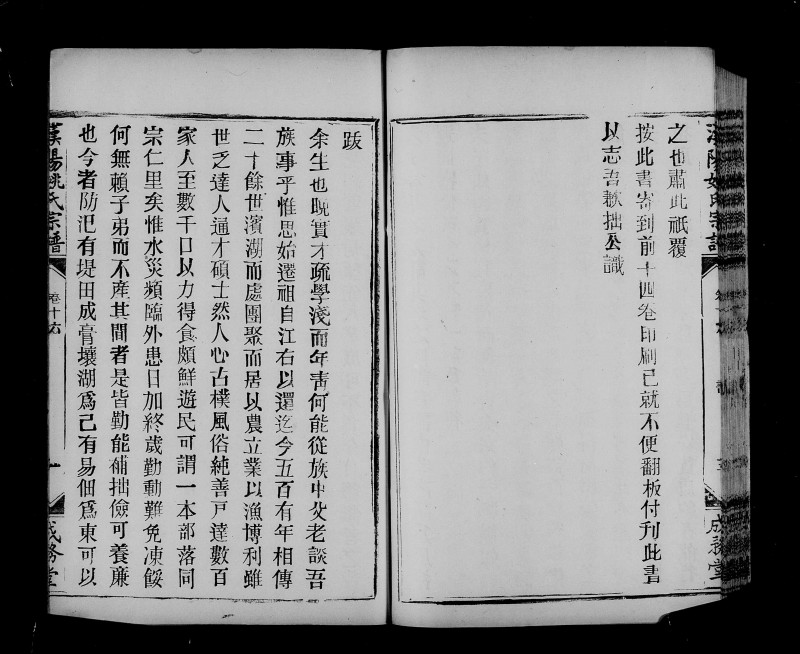 之也肅此祇覆
按此書寄到前十四卷印刷已就不便翻板付刊此書
以志吾歉拙公識
成務堂
跋
余生也晚質才疏學淺而年青何能從族中父老談吾
族事乎惟思始遷祖自江右以還迄今五百有年相傳
二十餘世濱湖而處團聚而居以農立業以漁博利雖
世乏達人通才碩士然人心古樸風俗純善戸達數百
家人至數千口以力得食頗鮮遊民可謂一本部落同
宗仁里矣惟水災頻臨外患日加終歲勤動難免凍餒
何無賴子弟而不産其間者是皆勤能補拙儉可養廉
也今者防汜有堤田成膏壤湖爲己有易佃爲東可以
漢陽姚氏宗譜
卷十六
成務堂